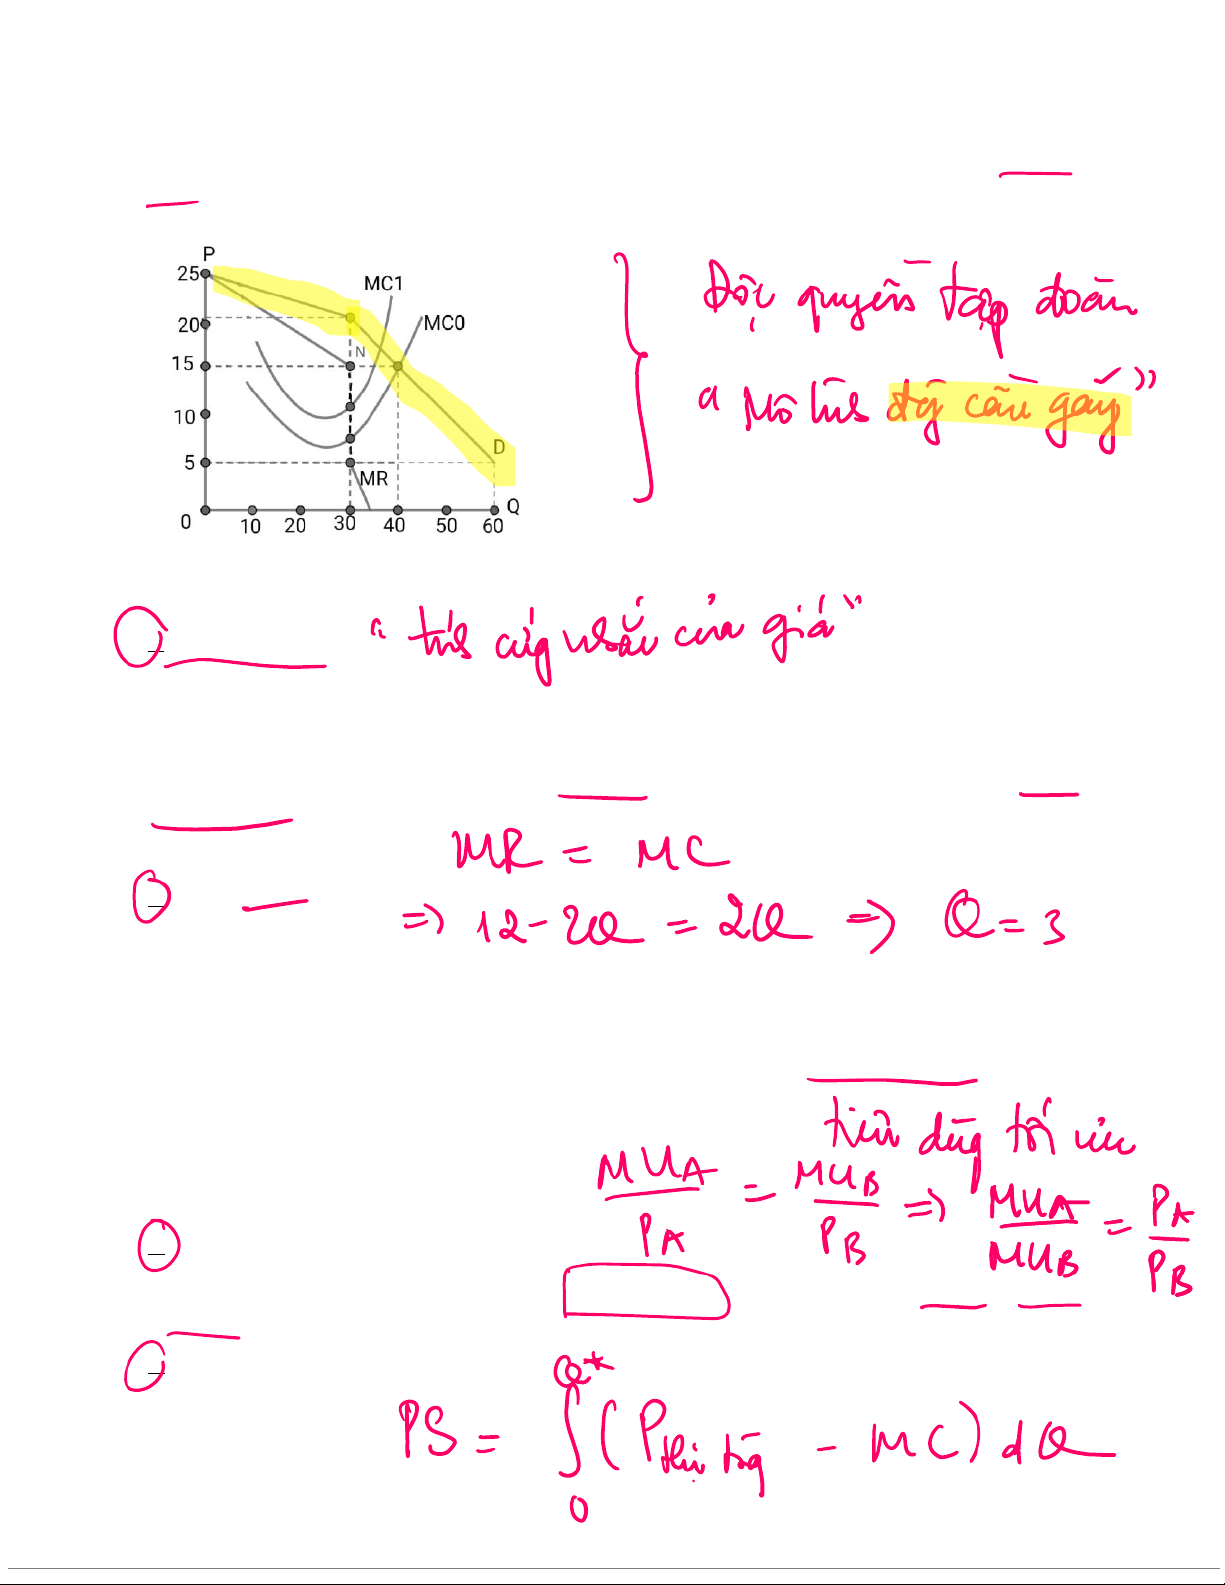 P
25
MC1
20
MC0
N
15
10
D
5
MR
Q
0 10 20 30 40 50 60
Độc quyền tập đoàn
" Mô hình đg cầu gãy"
" tính cứng nhắc của giá"
MR = MC
=> 12-2Q = 2Q => Q = 3
tiêu dùng tối ưu
MUA/PA = MUB/PB => MUA/MUB = PA/PB
PS = ∫₀^Q* (Pthị trường - MC) dQ